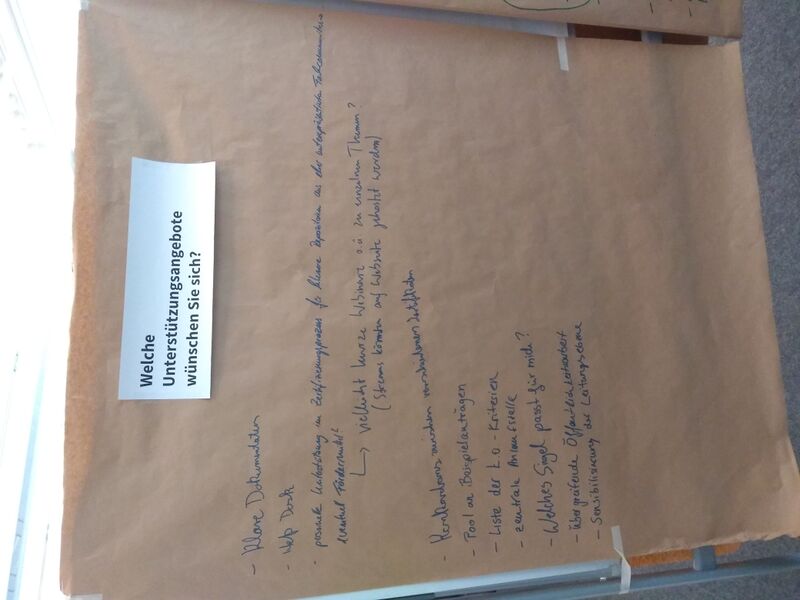 Welche
Unterstützungsangebote
wünschen Sie sich?
- Klare Dokumentation
- Help Desk
- personelle Unterstützung im Zertifizierungsprozess für kleinere Repositorien aus der
eventuell Fördermittel?
↳ vielleicht kurze Webinare o.ä zu einzelnen Themen?
(Streams könnten auf Webseite gehostet werden)
- Konkordanz zwischen vorhandenen Zertifikaten
- Pool an Beispielanträgen
- Liste der k.o-Kriterien
- zentrale Anlaufstelle
- Welches Siegel passt für mich?
- übergreifende Öffentlichkeitsarbeit
- Sensibilisierung der Leitungsebene